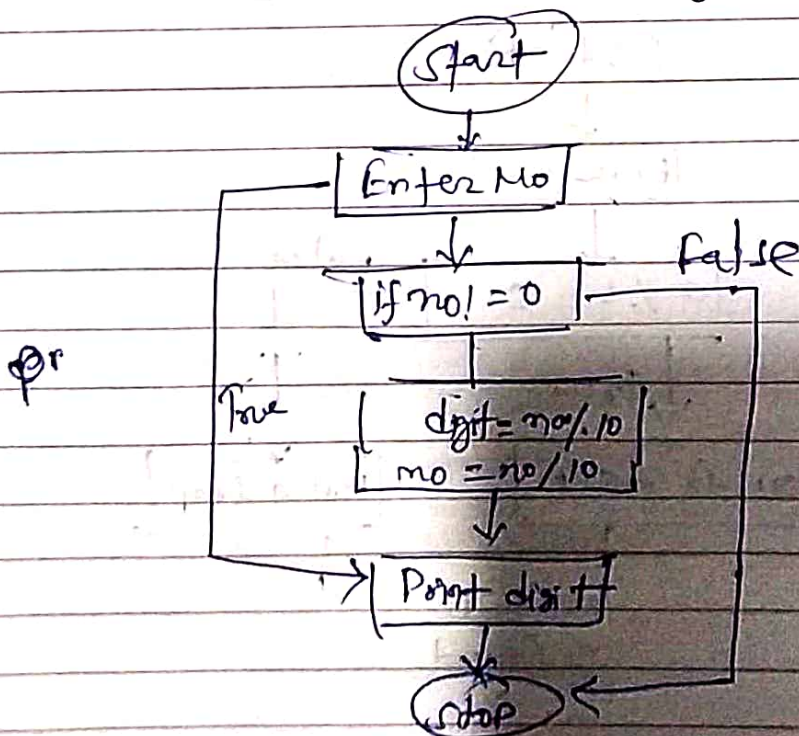 Start
Enter No
False
if no! = 0
pr
True
digit = no%10
no = no/10
Print digit
stop